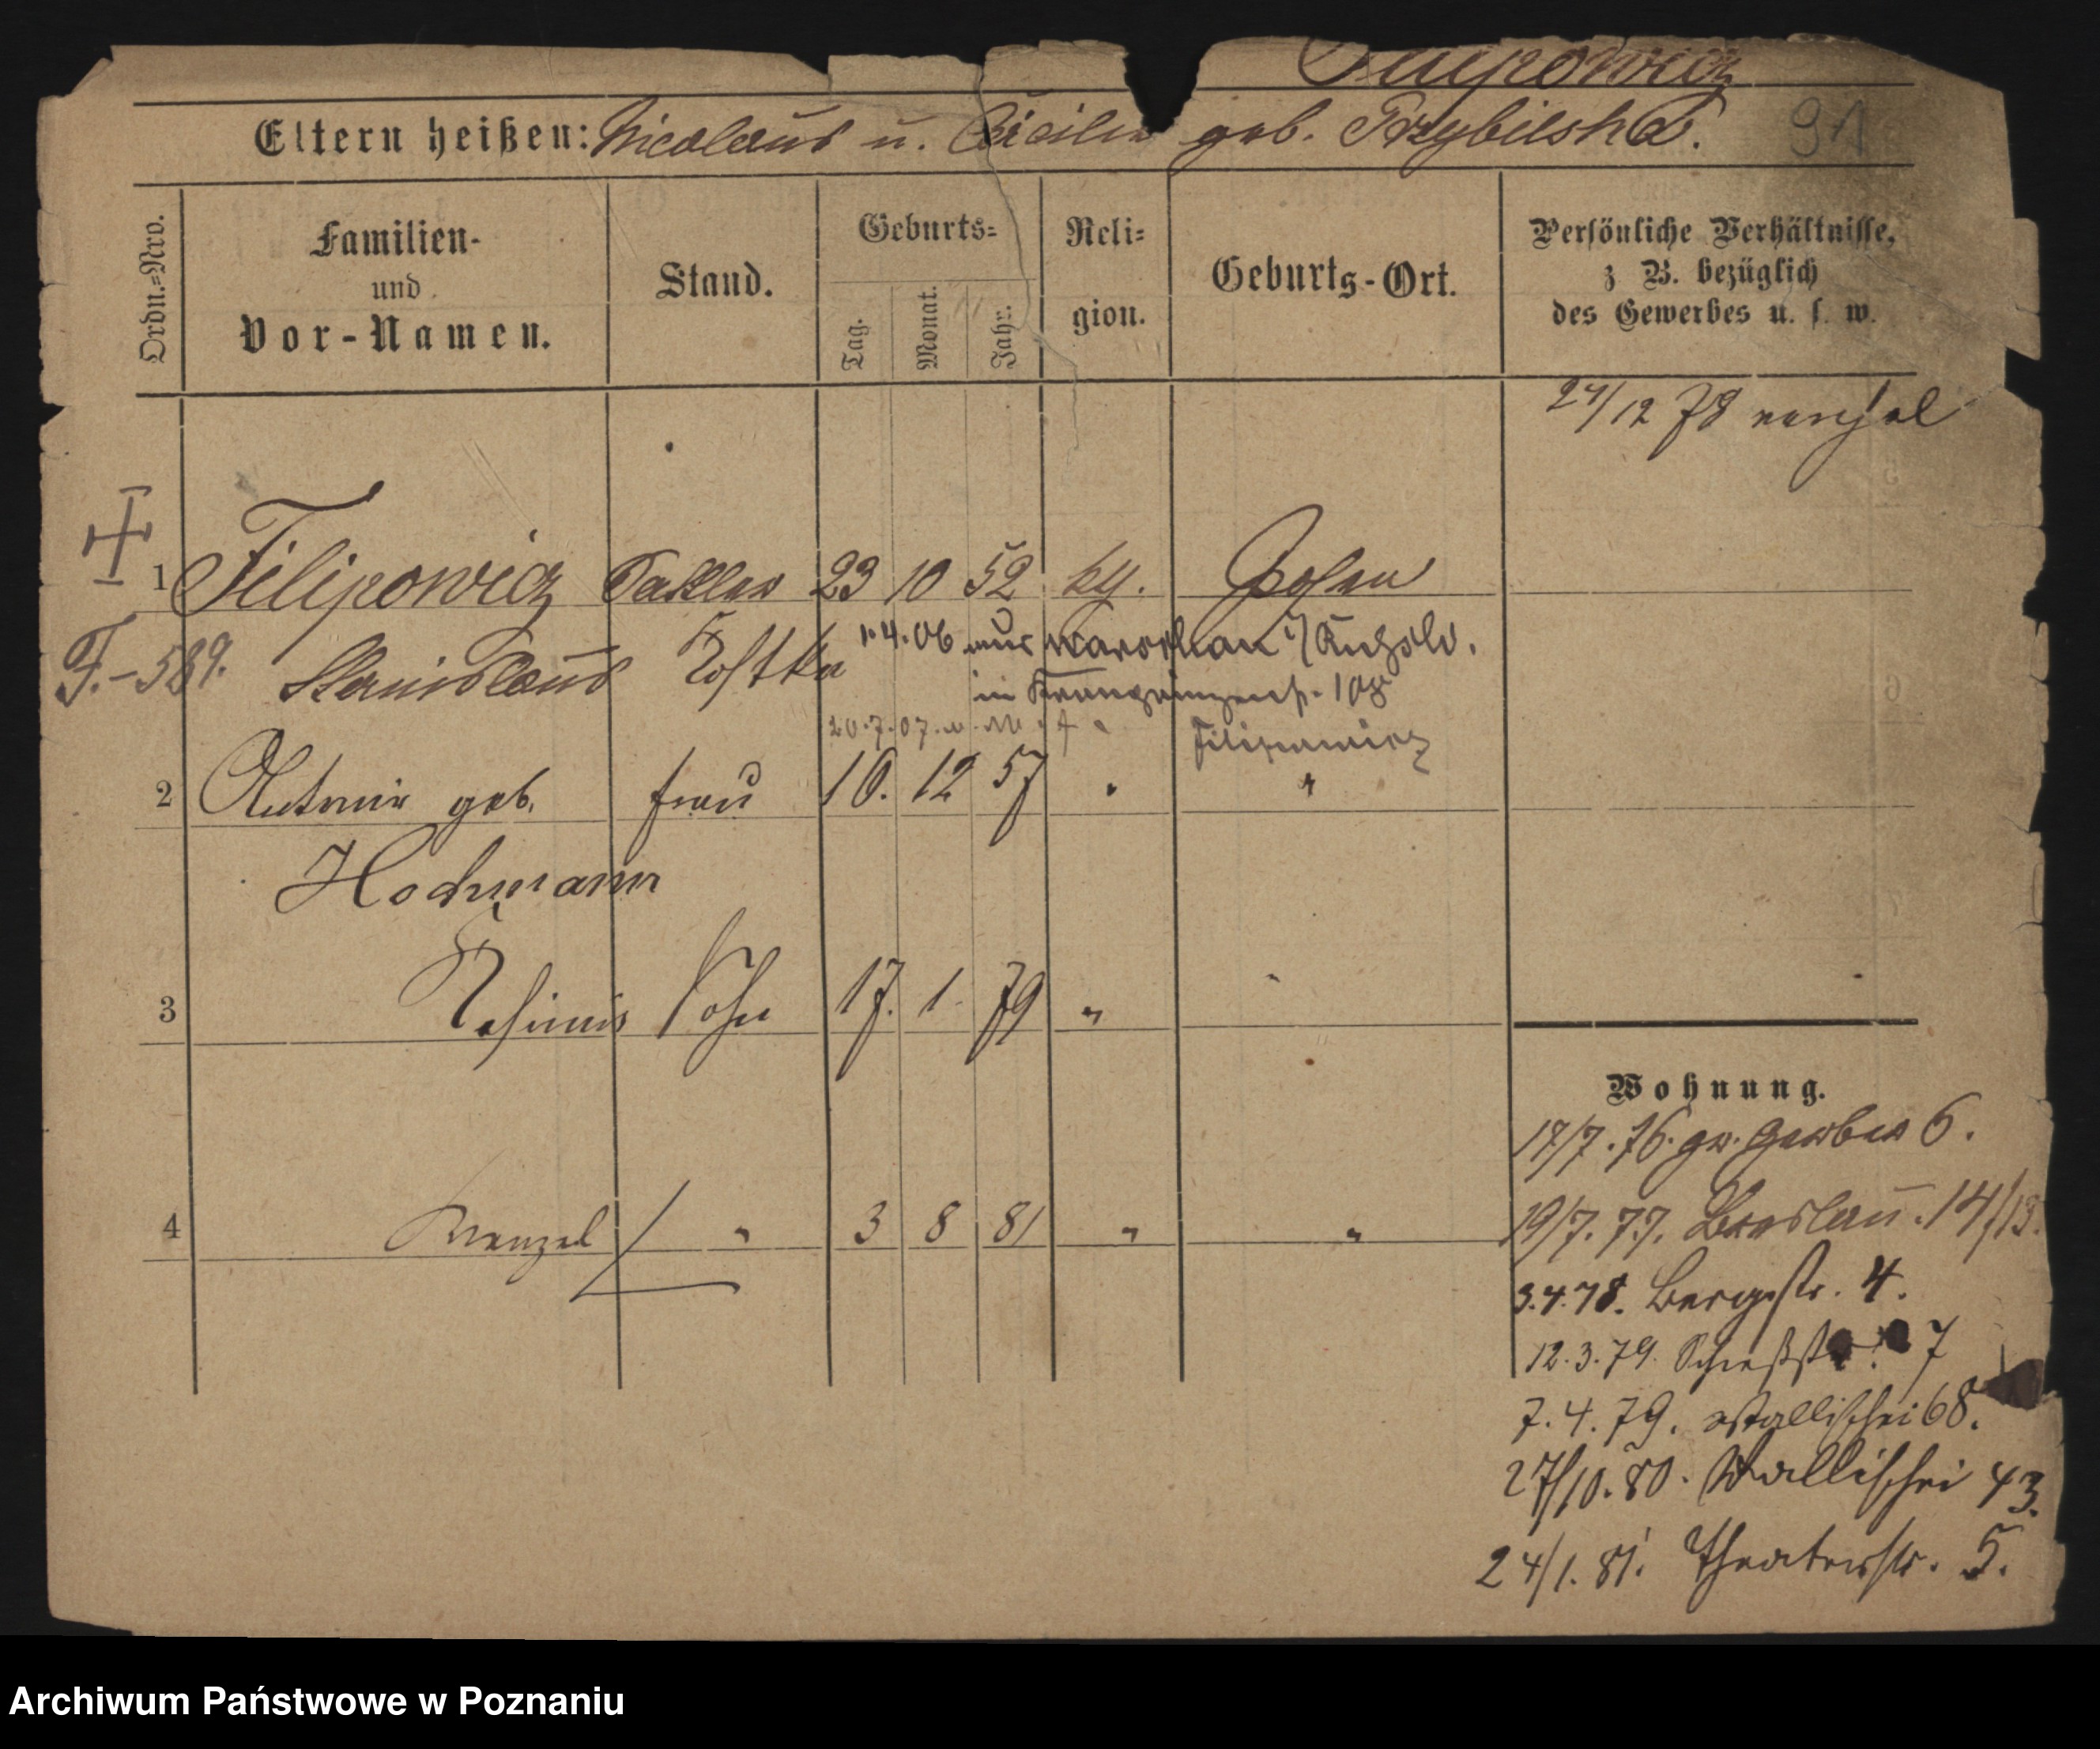 Filipowicz
Eltern heißen: Nicolaus u. Cäcilie geb. Przybilska.
91
Ordn.=Nro.
Familien-
und
Vor-Namen.
Stand.
Geburts=
Tag.
Monat.
Jahr.
Reli=
gion.
Geburts-Ort.
Persönliche Verhältnisse,
z B. bezüglich
des Gewerbes u. s. w.
24/12 78
1 Filipowicz Sattler 23 10 52 kth. Posen
F.-589. Stanislaus Kostka 1.4.06 aus
in Kronprinzenstr. 108
20.7.07.
Filipowicz
2 Antonie geb. Frau 16. 12 57 "
Hochmann
3 Kasimir Sohn 17. 1. 79 "
4 Wenzel " 3 8 81 " "
Wohnung.
17/7. 76. gr. Gerber 6.
19/7. 77. Breslau. 14/13.
3.4.78. Bergstr. 4.
12.3.79. Schießstr. 7
7.4.79. Wallischei 68.
27/10.80. Wallischei 43.
24/1.81. Theaterstr. 5.
Archiwum Państwowe w Poznaniu